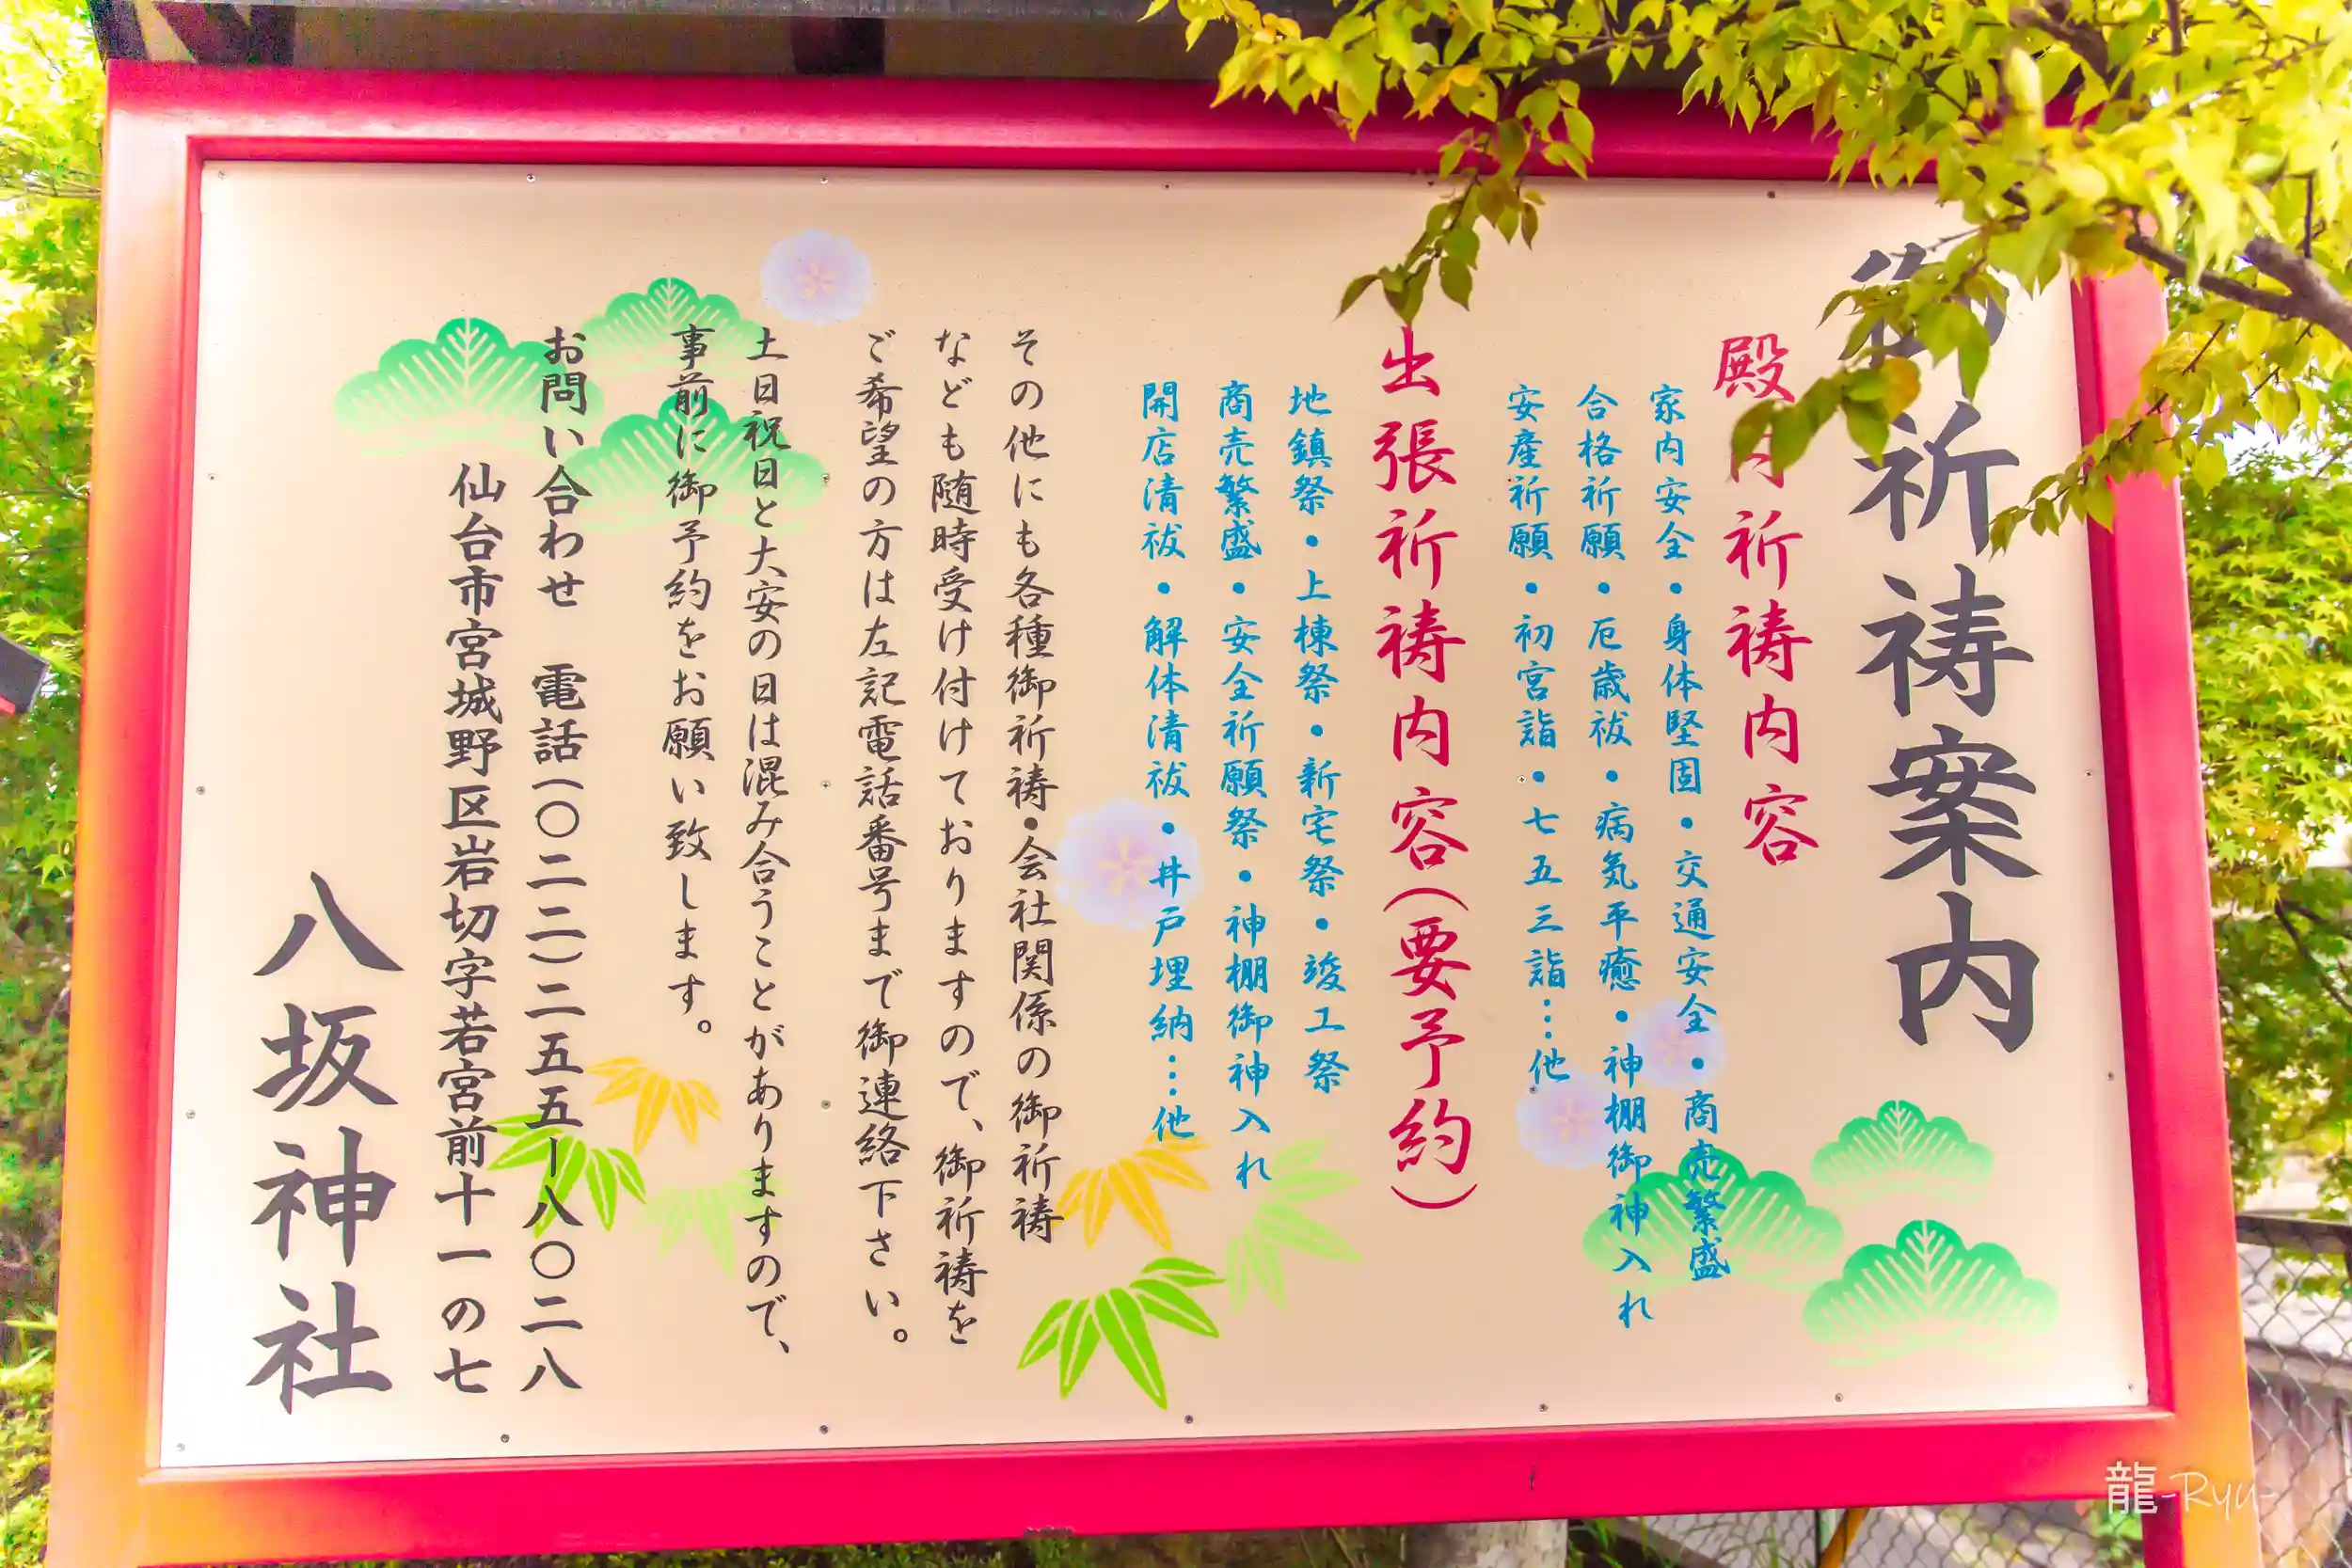 御祈祷案内
殿内祈祷内容
家内安全・身体堅固・交通安全・商売繁盛
合格祈願・厄歳祓・病気平癒・神棚御神入れ
安産祈願・初宮詣・七五三詣…他
出張祈祷内容(要予約)
地鎮祭・上棟祭・新宅祭・竣工祭
商売繁盛・安全祈願祭・神棚御神入れ
開店清祓・解体清祓・井戸埋納…他
その他にも各種御祈祷・会社関係の御祈祷
なども随時受け付けておりますので、御祈祷を
ご希望の方は左記電話番号まで御連絡下さい。
土日祝日と大安の日は混み合うことがありますので、
事前に御予約をお願い致します。
お問い合わせ 電話(〇二二)二五五ー八〇二八
仙台市宮城野区岩切字若宮前十一の七
八坂神社
龍-Ryu-